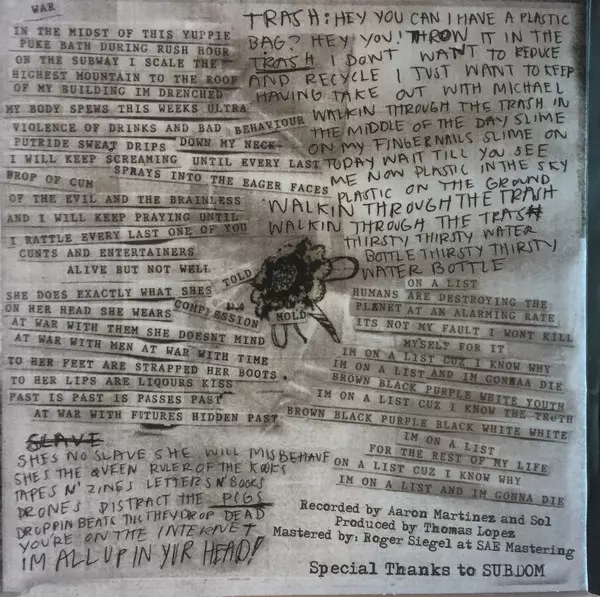 WAR
IN THE MIDST OF THIS YUPPIE
PUKE BATH DURING RUSH HOUR
ON THE SUBWAY I SCALE THE
HIGHEST MOUNTAIN TO THE ROOF
OF MY BUILDING IM DRENCHED
MY BODY SPEWS THIS WEEKS ULTRA
VIOLENCE OF DRINKS AND BAD BEHAVIOUR
PUTRIDE SWEAT DRIPS DOWN MY NECK
I WILL KEEP SCREAMING UNTIL EVERY LAST
DROP OF CUM SPRAYS INTO THE EAGER FACES
OF THE EVIL AND THE BRAINLESS
AND I WILL KEEP PRAYING UNTIL
I RATTLE EVERY LAST ONE OF YOU
CUNTS AND ENTERTAINERS
ALIVE BUT NOT WELL
SHE DOES EXACTLY WHAT SHES TOLD
ON HER HEAD SHE WEARS COMPLESSION MOLD
AT WAR WITH THEM SHE DOESNT MIND
AT WAR WITH MEN AT WAR WITH TIME
TO HER FEET ARE STRAPPED HER BOOTS.
TO HER LIPS ARE LIQOURS KISS
PAST IS PAST IS PASSES PAST
AT WAR WITH FITURES HIDDEN PAST
SLAVE
SHES NO SLAVE SHE WILL MISBEHAVE
SHE'S THE QVEEN RULER OF THE KOOKS
TAPES N' ZINES LETTERS N' BOOKS
DRONES DISTRACT THE PIGS
DROPPIN BEATS TILL THEY DROP DEAD
YOU'RE ON THE INTERNET
IM ALL UP IN YUR HEAD!
TRASH: HEY YOU CAN I HAVE A PLASTIC
BAG? HEY YOU! THROW IT IN THE
TRASH I DONT WANT TO REDUCE
AND RECYCLE I JUST WANT TO KEEP
HAVING TAKE OUT WITH MICHAEL
WALKIN THROUGH THE TRASH IN
THE MIDDLE OF THE DAY SLIME
ON MY FINGERNAILS SLIME ON
TODAY WAIT TILL YOU SEE
ME NOW PLASTIC IN THE SKY
PLASTIC ON THE GROUND
WALKIN THROUGH THE TRASH
WALKIN THROUGH THE TRASH
THIRSTY THIRSTY WATER
BOTTLE THIRSTY THIRSTY
WATER BOTTLE
ON A LIST
HUMANS ARE DESTROYING THE
PLANET AT AN ALARMING RATE
ITS NOT MY FAULT I WONT KILL
MYSELF FOR IT
IM ON A LIST CUZ I KNOW WHY
IM ON A LIST AND IM GONNAA DIE
BROWN BLACK PURPLE WHITE YOUTH
IM ON A LIST CUZ I KNOW THE TRUTH
BROWN BLACK PURPLE BLACK WHITE WHITE
IM ON A LIST
FOR THE REST OF MY LIFE
ON A LIST CUZ I KNOW WHY
IM ON A LIST AND IM GONNA DIE
Recorded by Aaron Martinez and Sol
Produced by Thomas Lopez
Mastered by: Roger Siegel at SAE Mastering
Special Thanks to SUBDOM